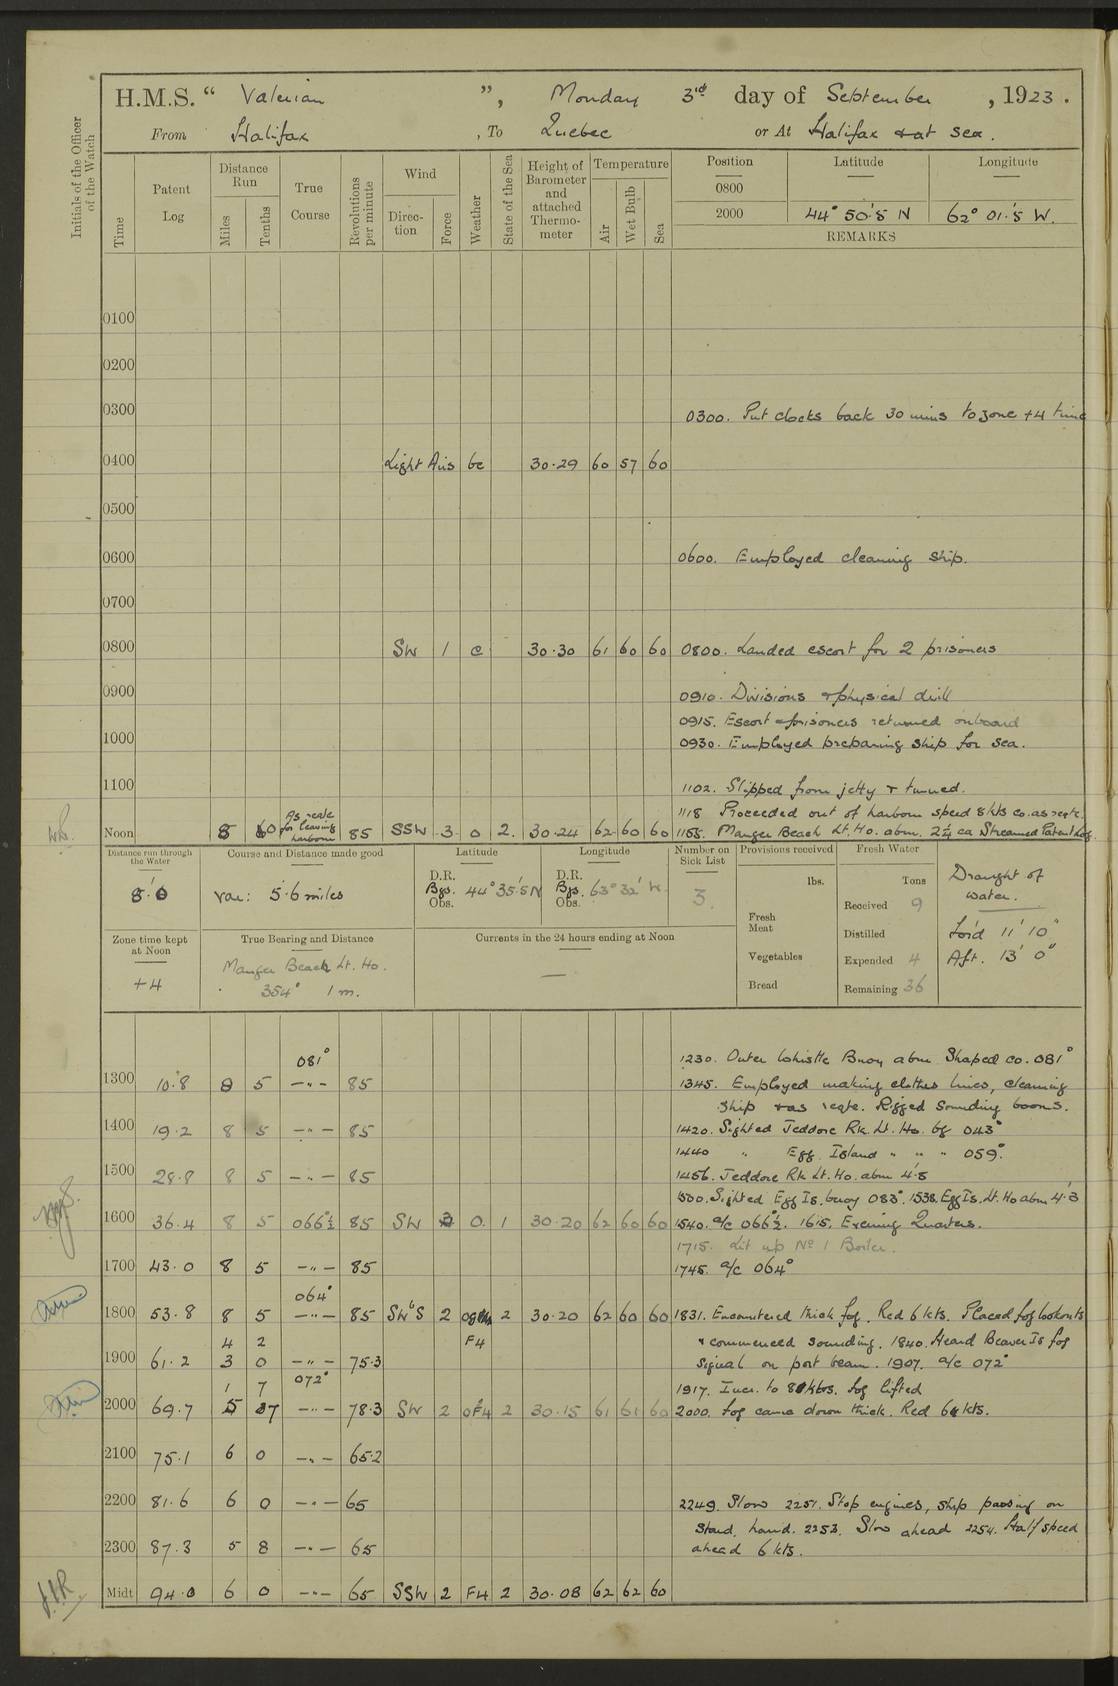 H.M.S. “ Valerian ”, Monday 3rd day of September , 1923 .
From Halifax , To Quebec or At Halifax & at sea .
Initials of the Officer of the Watch
Time
Patent Log
Distance Run
Miles
Tenths
True Course
Revolutions per minute
Wind
Direc-tion
Force
Weather
State of the Sea
Height of Barometer and attached Thermo-meter
Temperature
Air
Wet Bulb
Sea
Position Latitude Longitude
0800
2000 44° 50'.8 N 62° 01'.8 W.
REMARKS
0100
0200
0300 0300. Put clocks back 30 mins to zone +4 time
0400 Light Airs bc 30·29 60 57 60
0500
0600 0600. Employed cleaning ship.
0700
0800 SW 1 c 30·30 61 60 60 0800. Landed escort for 2 prisoners
0900 0910. Divisions & physical drill
0915. Escort & prisoners returned onboard
1000 0930. Employed preparing ship for sea.
1100 1102. Slipped from jetty & turned.
1118 Proceeded out of harbour speed 8 kts co. as reqte.
Noon 8 0 As reqte for leaving harbour 85 SSW 3 o 2. 30·24 62 60 60 1155. Manger Beach Lt. Ho. abm. 2¼ ca Streamed Patent Log.
Distance run through the Water
8'.0
Course and Distance made good
var: 5·6 miles
Latitude
D.R.
Bgs. 44° 35'.5 N
Obs.
Longitude
D.R.
Bgs. 63° 32' W.
Obs.
Number on Sick List
3.
Provisions received
lbs.
Fresh Meat
Vegetables
Bread
Fresh Water
Tons
Received 9
Distilled
Expended 4
Remaining 36
Draught of water.
For'd 11' 10"
Aft. 13' 0"
Zone time kept at Noon
+4
True Bearing and Distance
Manger Beach Lt. Ho.
354° 1 m.
Currents in the 24 hours ending at Noon
—
081° 1230. Outer Whistle Buoy abm Shaped co. 081°
1300 10·8 8 5 —"— 85 1345. Employed making clothes lines, cleaning
ship & as reqte. Rigged sounding booms.
1400 19·2 8 5 —"— 85 1420. Sighted Jeddore Rk. Lt. Ho. bg 043°
1440 " Egg Island " " " 059°.
1500 28·8 8 5 —"— 85 1456. Jeddore Rk Lt. Ho. abm 4'.8
1500. Sighted Egg Is. buoy 083°. 1538. Egg Is. Lt. Ho abm 4'.3
1600 36·4 8 5 066°½ 85 SW 2 o. 1 30·20 62 60 60 1540. a/c 066°½. 1615. Evening Quarters.
1715. Lit up No 1 Boiler.
1700 43·0 8 5 —"— 85 1745. a/c 064°
064°
1800 53·8 8 5 —"— 85 SWbS 2 2 30·20 62 60 60 1831. Encountered thick fog. Red 6 kts. Placed fog lookouts
4 2 F4 & commenced sounding. 1840. Heard Beaver Is fog
1900 61·2 3 0 —"— 75·3 signal on port beam. 1907. a/c 072°
1 7 072° 1917. Incr. to 8 kts. fog lifted
2000 69·7 5 7 —"— 78·3 SW 2 oF4 2 30·15 61 61 60 2000. Fog came down thick. Red 6 kts.
2100 75·1 6 0 —"— 65·2
2200 81·6 6 0 —"— 65 2249. Slow 2251. Stop engines, ship passing on
Starbd. hand. 2253. Slow ahead 2254. Half speed
2300 87·3 5 8 —"— 65 ahead 6 kts.
Midt 94·0 6 0 —"— 65 SSW 2 F4 2 30·08 62 62 60